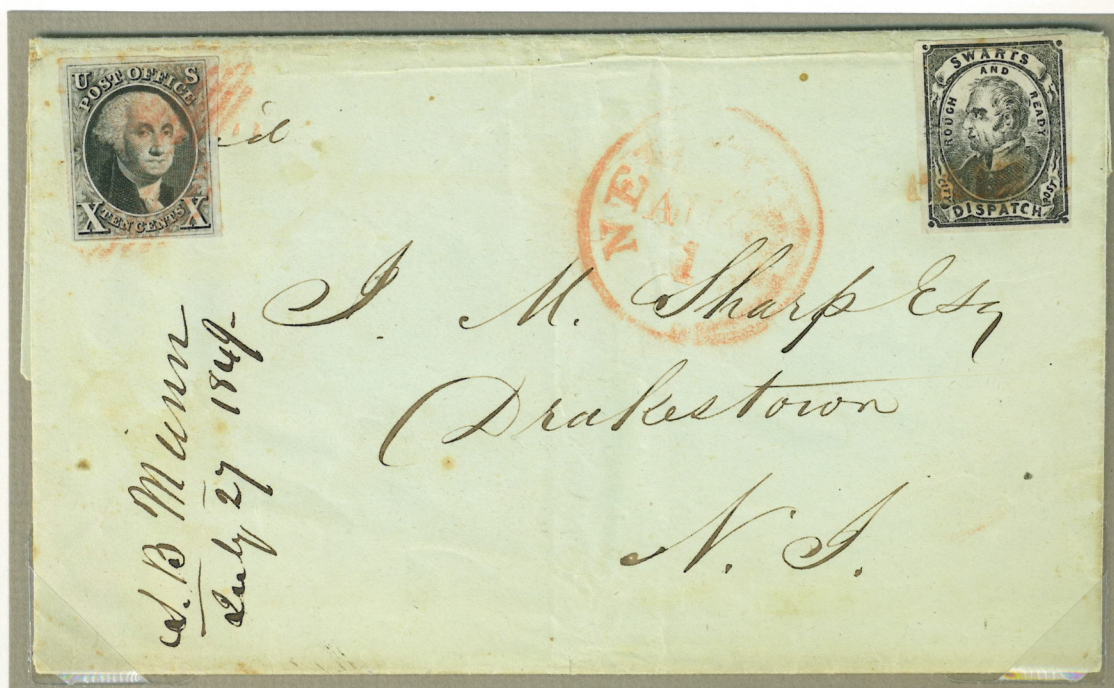 U S
POST OFFICE
X TEN CENTS X
SWARTS
AND
ROUGH READY
CITY POST
DISPATCH
NE
AU
1
J M. Sharp Esq
Drakestown
N. J.
S. B Munn
July 27 1849